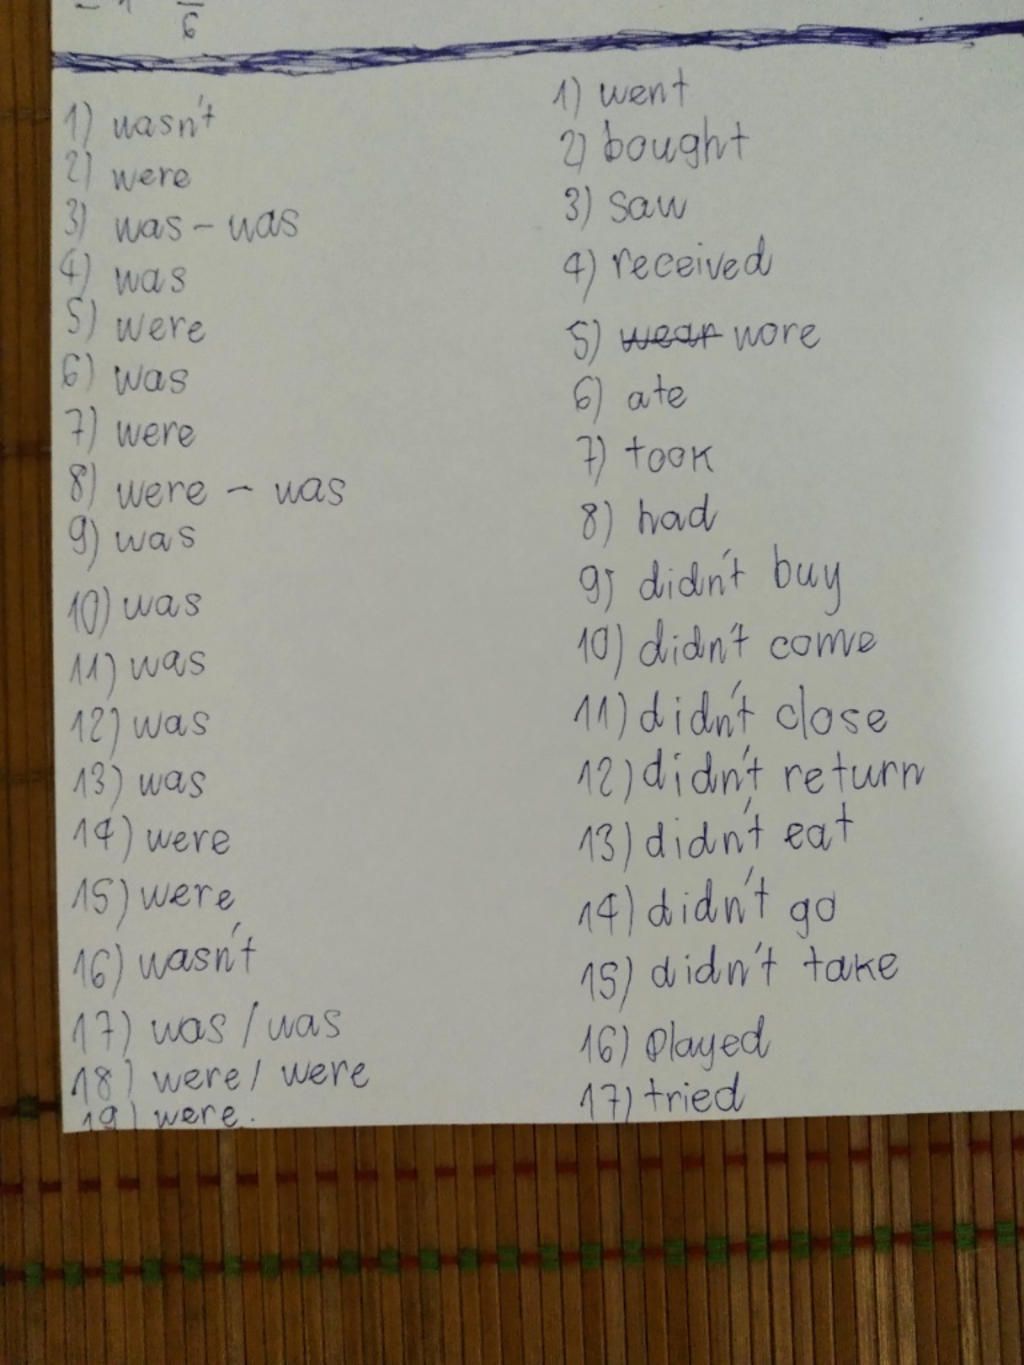 6
1) wasn't
2) were
3) was – was
4) was
5) were
6) was
7) were
8) were – was
9) was
10) was
11) was
12) was
13) was
14) were
15) were
16) wasn't
17) was / was
18) were / were
19) were.
1) went
2) bought
3) saw
4) received
5) wear wore
6) ate
7) took
8) had
9) didn't buy
10) didn't come
11) didn't close
12) didn't return
13) didn't eat
14) didn't go
15) didn't take
16) played
17) tried